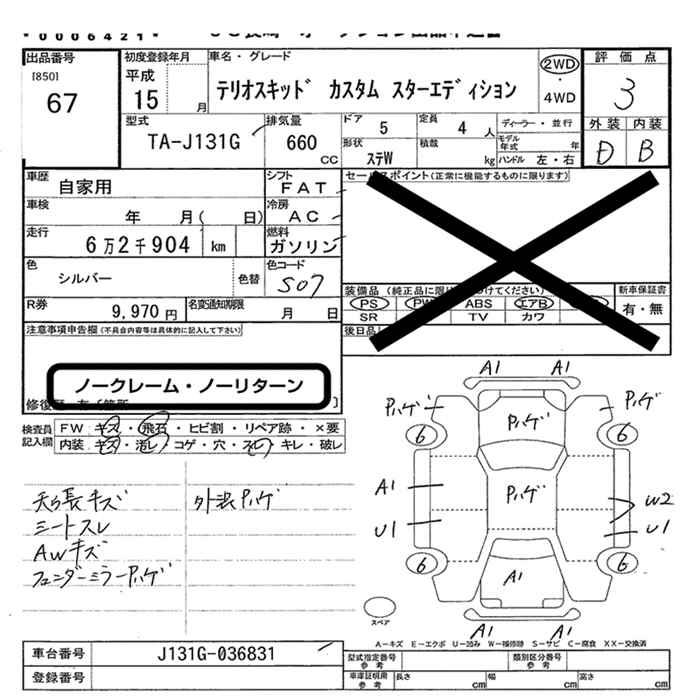 *0006421*
出品番号
[850]
67
初度登録年月
平成
15 月
車名・グレード
テリオスキッド カスタム スターエディション
2WD
・
4WD
評価点
3
外装 内装
D B
型式
TA-J131G
排気量
660
CC
ドア
5
定員
4 人
形状
ステW
積載
kg
ディーラー・並行
モデル年式 年
ハンドル 左・右
車歴
自家用
シフト
FAT
車検
年 月( 日)
冷房
AC
走行
6万2千904 km
燃料
ガソリン
色
シルバー
色替
色コード
S07
R券
9,970円
名変通知期限
月 日
セールスポイント(正常に機能するものに限ります)
装備品 (純正品に限り
つけてください)
PS PW ABS エアB
SR TV カワ
新車保証書
有・無
後日品
注意事項申告欄(不具合内容等は具体的に記入して下さい)
ノークレーム・ノーリターン
検査員
記入欄
FW キズ・飛石・ヒビ割・リペア跡・×要
内装 キズ・汚レ・コゲ・穴・スレ・キレ・破レ
天張キズ
シートスレ
AWキズ
フェンダーミラーハゲ
外装ハゲ
A1 A1
ハゲ ハゲ ハゲ
6 6
A1 ハゲ W2
U1 U1
6 6
A1
A1 A1
スペア
A-キズ E-エクボ U-凹み W-補修跡 S-サビ C-腐食 XX-交換済
車台番号
J131G-036831
登録番号
型式指定番号
参考
類別区分番号
参考
車庫証明用
参考
長さ cm 幅 cm 高さ cm